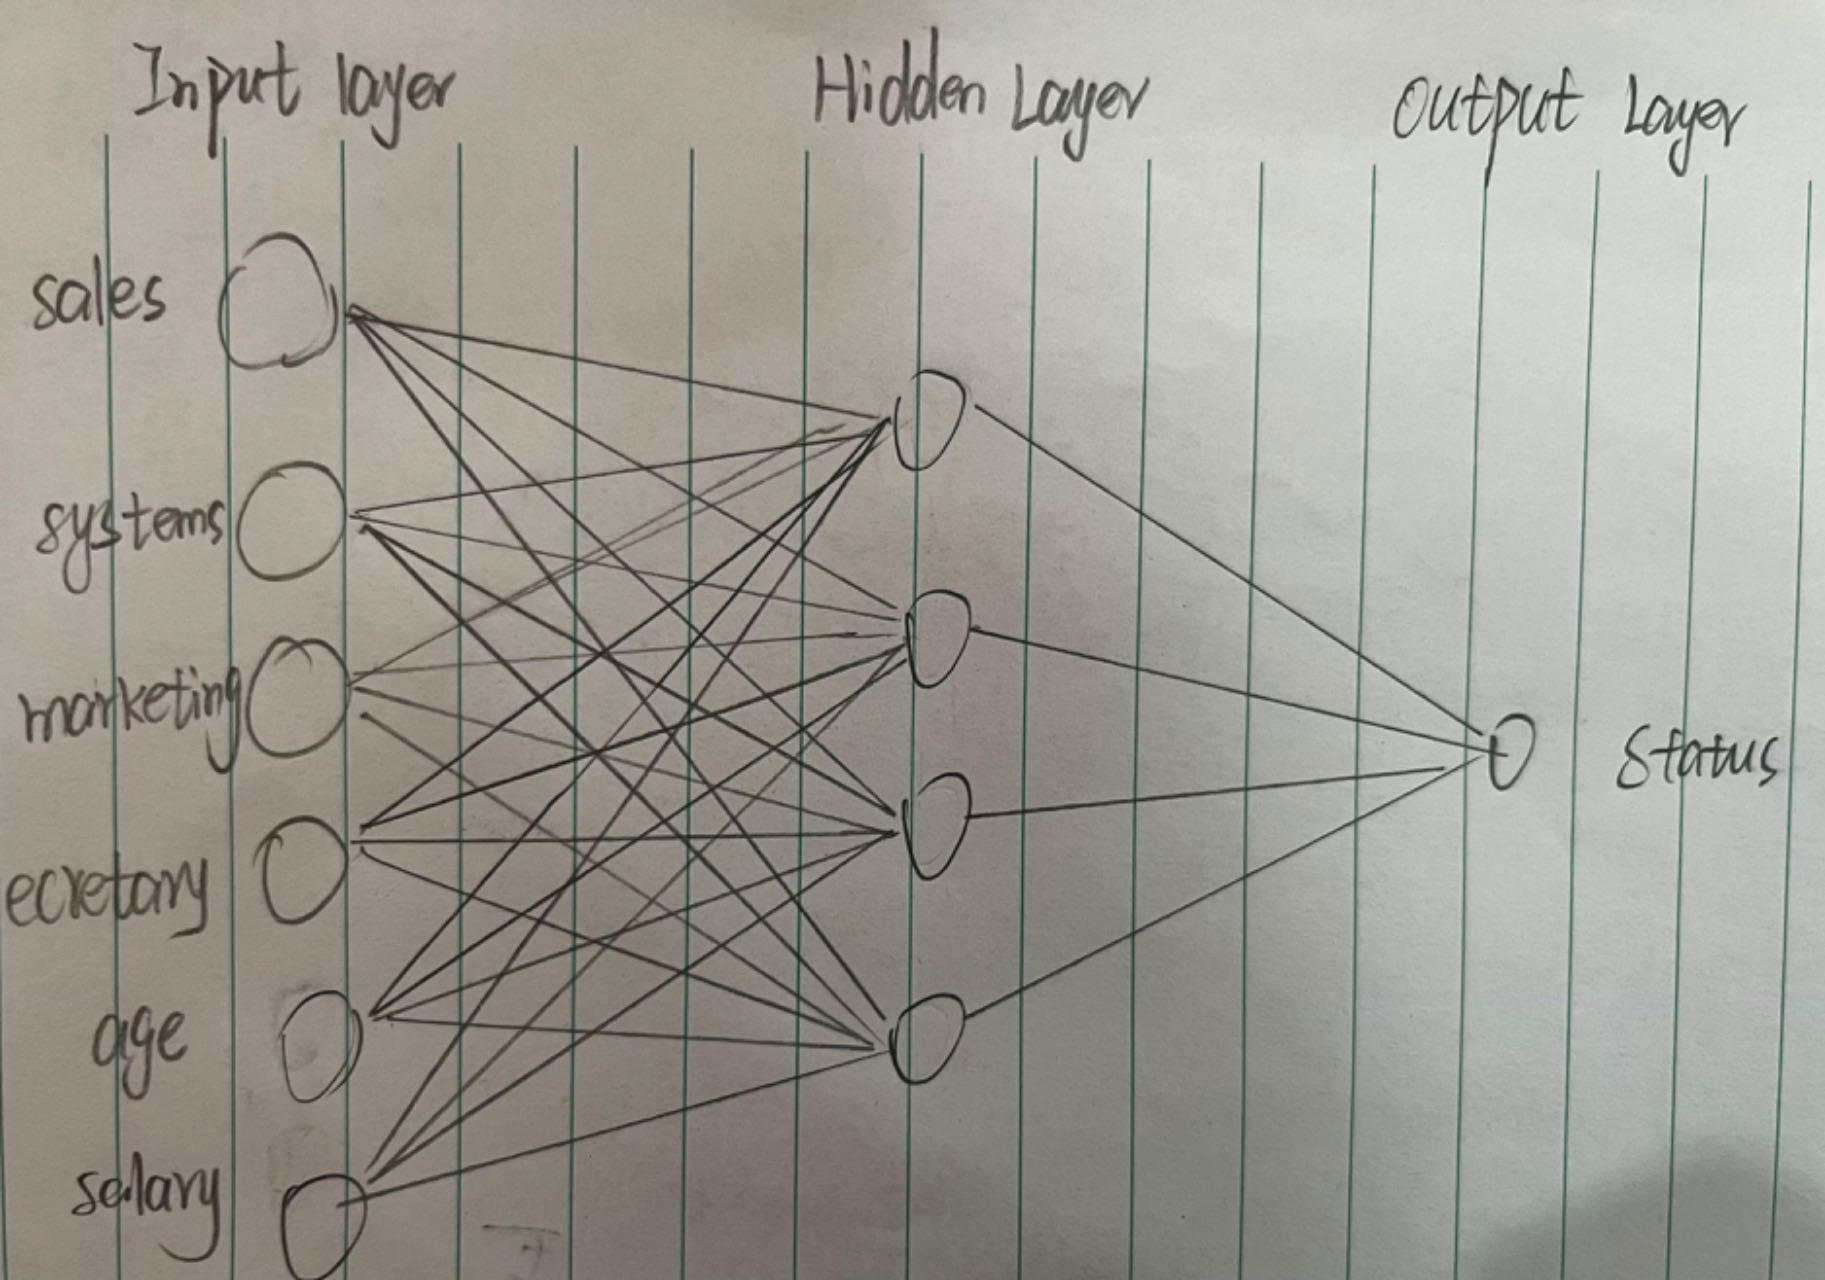 Input layer
Hidden Layer
Output Layer
sales
systems
marketing
ecretary
age
salary
Status